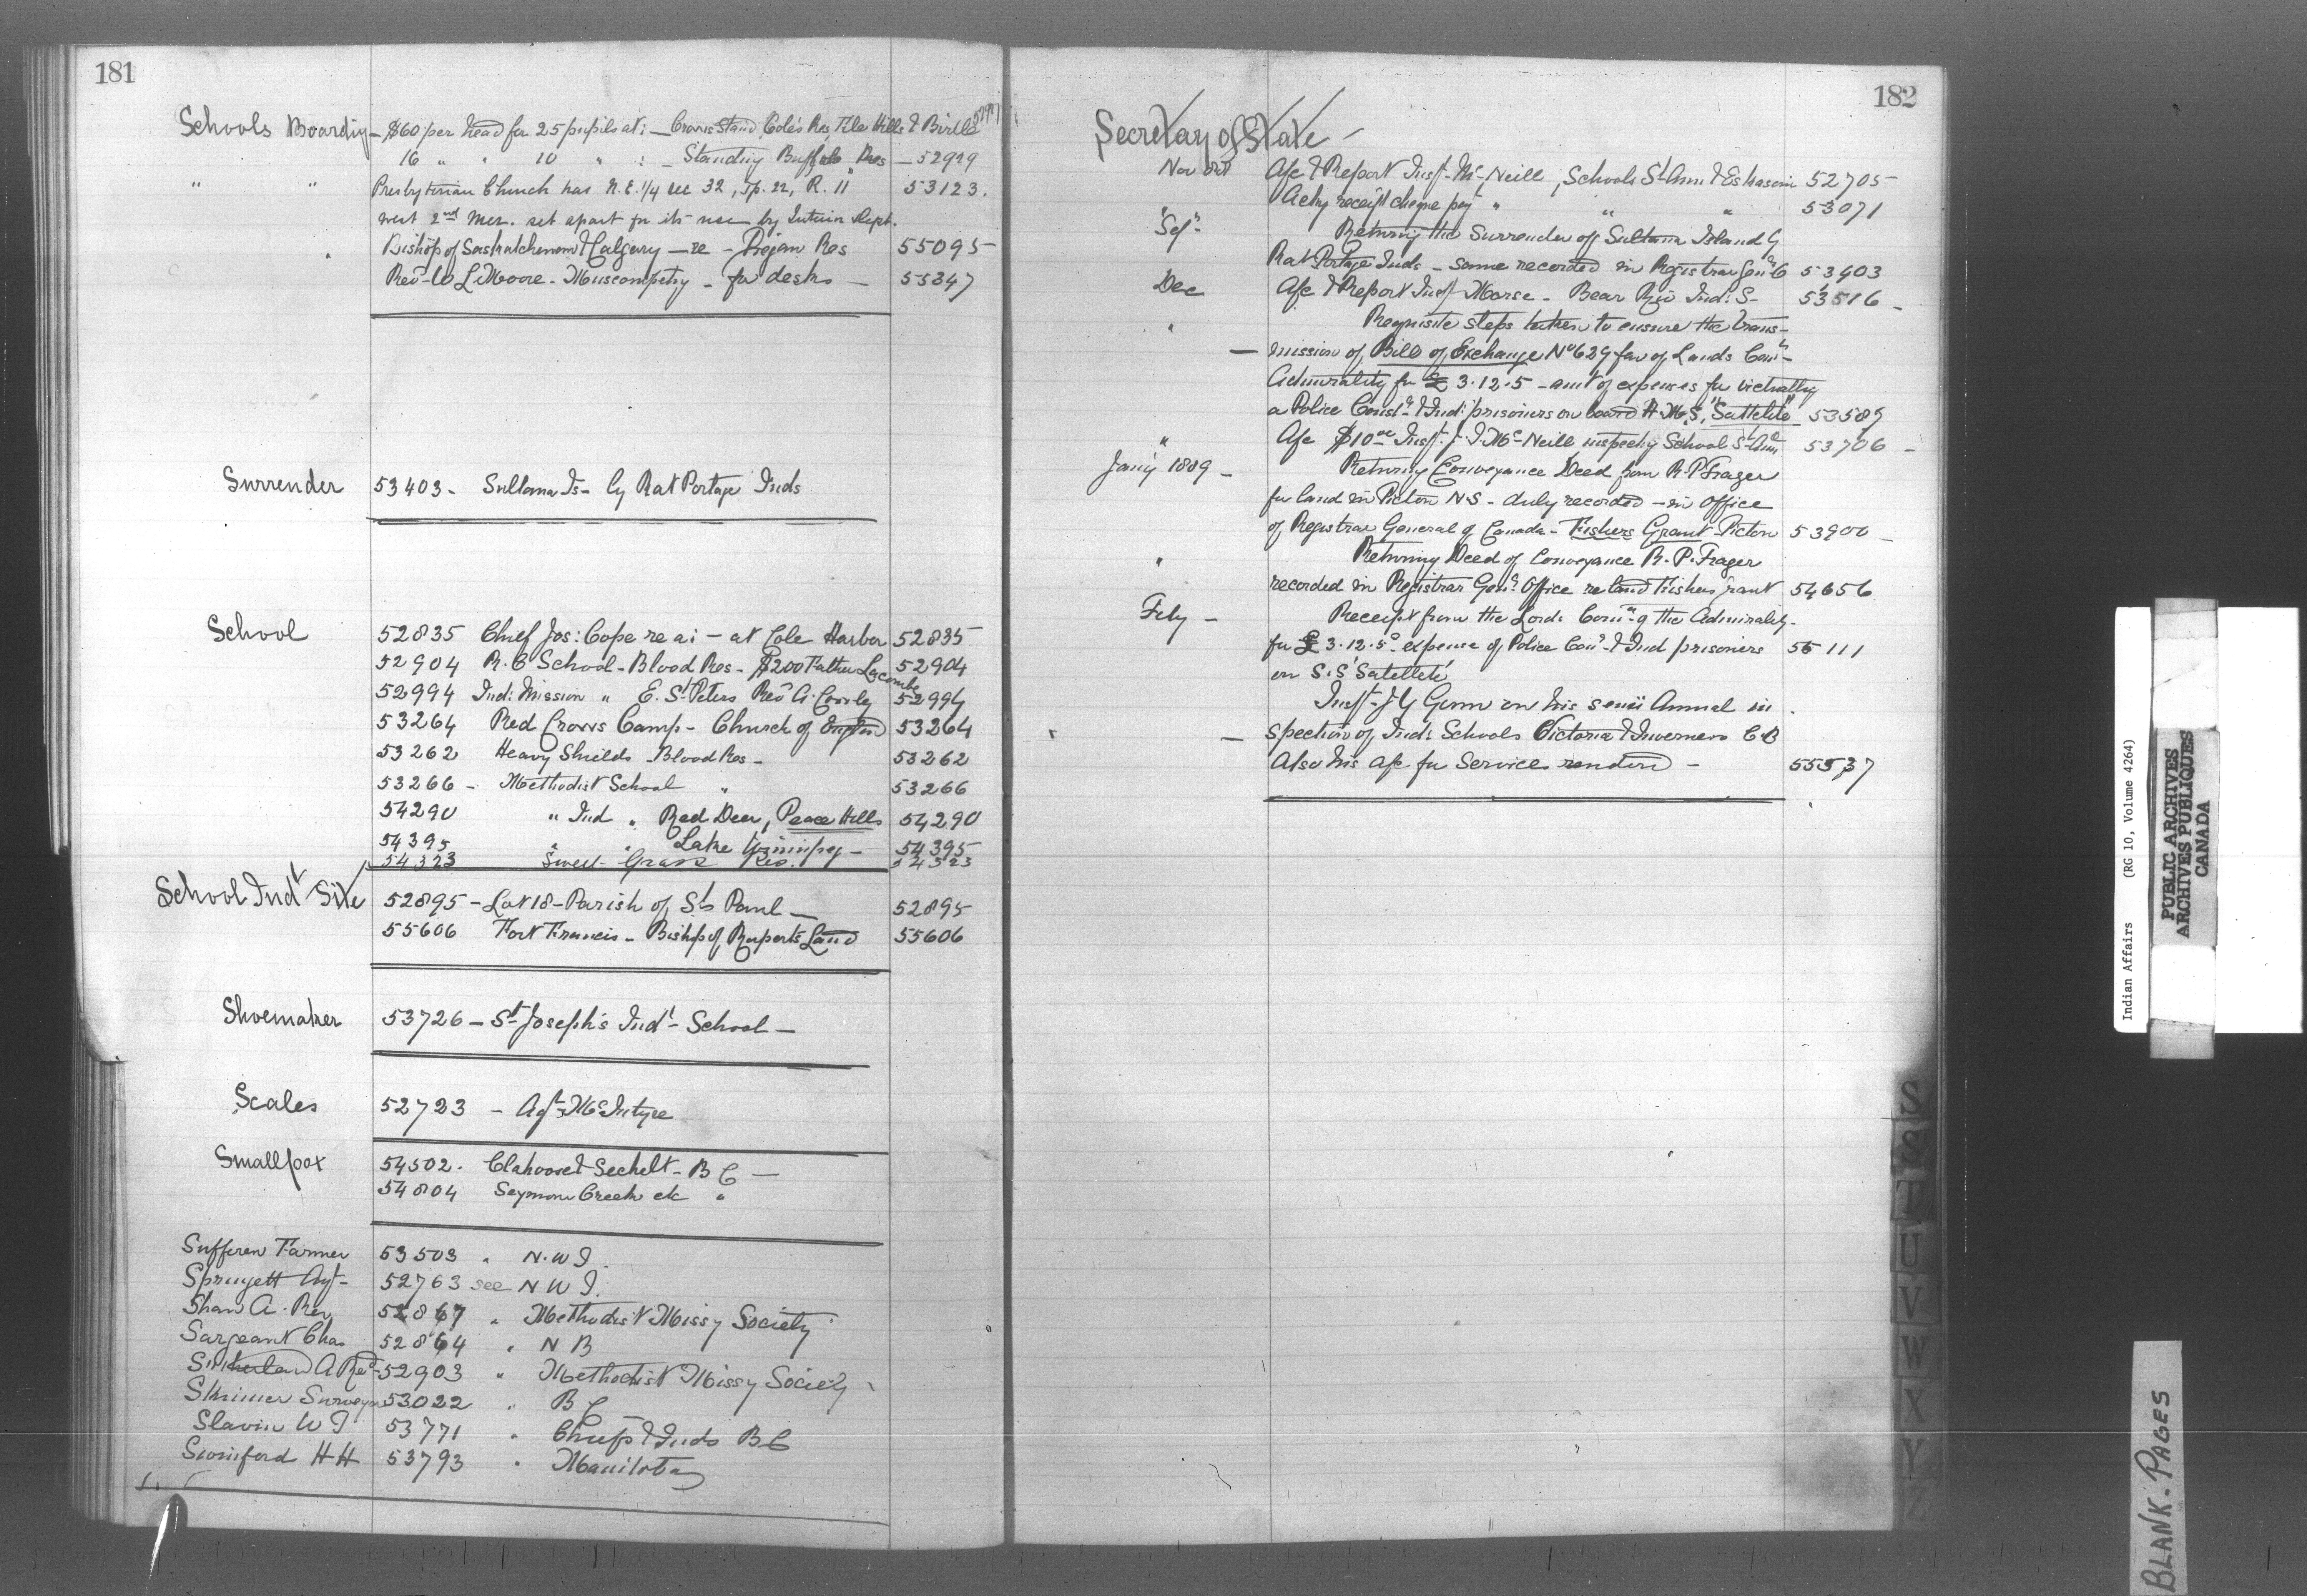 181
Schools Boarding - $60 per head for 25 pupils at: - Crows Stand Cote's Res File Hills & Birtle 52979
16 " " 10 " : - Standing Buffalo Res - 52979
" " Presbyterian Church has N.E. 1/4 sec 32, Tp. 22, R. 11 53123.
west 2nd Mer. set apart for its use by Interior Dept.
" Bishop of Saskatchewan & Calgary - re - Piegan Res 55095
Revd W L Moore - Muscowpetng - for desks - 55347
Surrender 53403 - Sultana Is - by Rat Portage Inds
School 52835 Chief Jos: Cope re a: - at Cole Harbor 52835
52904 R.C School - Blood Res - $200 Father Lacombe 52904
52994 Ind: Mission " E. St Peters Revd A. Cowley 52994
53264 Red Crows Camp - Church of England 53264
53262 Heavy Shields - Blood Res - 53262
53266 - Methodist School " 53266
54290 " Ind " Red Deer, Peace Hills 54290
54395 " " Lake Winnipeg - 54395
54323 Sweet Grass Res. 54323
School Indl Site 52895 - Lot 18 - Parish of St Paul - 52895
55606 Fort Francis - Bishop of Ruperts Land 55606
Shoemaker 53726 - St Joseph's Indl - School -
Scales 52723 - Agt McIntyre
Smallpox 54502. Clahoose & Sechelt - B C -
54804 Seymour Creek etc "
Sufferen Farmer 53503 " N.W T.
Spruyett Agt - 52763 see N W T.
Shaw A. Rev 52867 " Methodist Missy Society
Sargeant Chas 52864 " N B
Sutherland A Revd 52903 " Methodist Missy Society
Skinner Surveyor 53022 " B C
Slavin W T 53771 " Chiefs & Inds B C
Swinford H H 53793 " Manitoba
182
Secretary of State -
Nov Acc & Report Insp - McNeill, Schools St Ann & Eskasoni 52705
Ackg receipt cheque pay " " " 53071
"Sep" Returning the Surrender of Sultana Island by
Rat Portage Inds - same recorded in Registrar Genls O 53403
Dec Acc & Report Insp Morse - Bear Riv Ind: S - 53516 -
" Requisite steps taken to ensure the trans-
- mission of Bill of Exchange No 629 fav of Lands Comn -
Admirality for £ 3.12.5 - amt of expenses for victually
a Police Const & Ind: prisoners on board H.M.S. "Sattelite" 53589
" Acc $10 00 Insp. J.J. McNeill inspectg School St Ann 53706 -
Jany 1889 - Returning Conveyance Deed from R. P Frager
for land in Picton N S - duly recorded - in Office
of Registrar General of Canada - Fishers Grant Picton 53900 -
" Returning Deed of Conveyance R. P. Frager
recorded in Registrar Genl Office re land Fishers Grant 54656
Feby - Receipt from the Lords Comn of the Admirality -
for £ 3.12.5 - expense of Police Con & Ind prisoners 55111
on S.S "Satellete"
Insp - J Y Gunn on his semi Annual in
- spection of Ind: Schools Victoria & Inverness C B
Also his acc for Services rendered - 55537
S
T
U
V
W
X
Y
Z
Indian Affairs (RG 10, Volume 4264)
PUBLIC ARCHIVES
ARCHIVES PUBLIQUES
CANADA
BLANK. PAGES